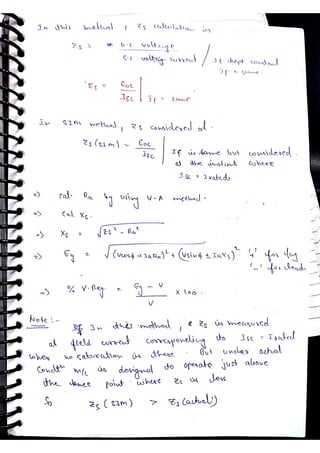 In this method, Zs calculation is
Zs = O.C voltage / S.C current | If kept constant
If = same
Zs = Eoc / Isc | If = same
In SIM method, Zs considered at
Zs (SIM) = Eoc / Isc | If is same but considered
at the instant where
Isc = Irated
=) cal. Ra by using V-A method.
=) Cal Xs.
=) Xs = √Zs² - Ra²
=) Eg = √(Vcosφ + IaRa)² + (Vsinφ ± IaXs)² '+' for lag
'-' for lead
=) % V.Reg = Eg - V / V x 100.
Note :-
In this method, Zs is measured
at field current corresponding to Isc = Irated
when no saturation is there. But under actual
Condⁿ m/c is designed to operate just above
the knee point where Zs is less
So Zs (SIM) > Zs (actual)